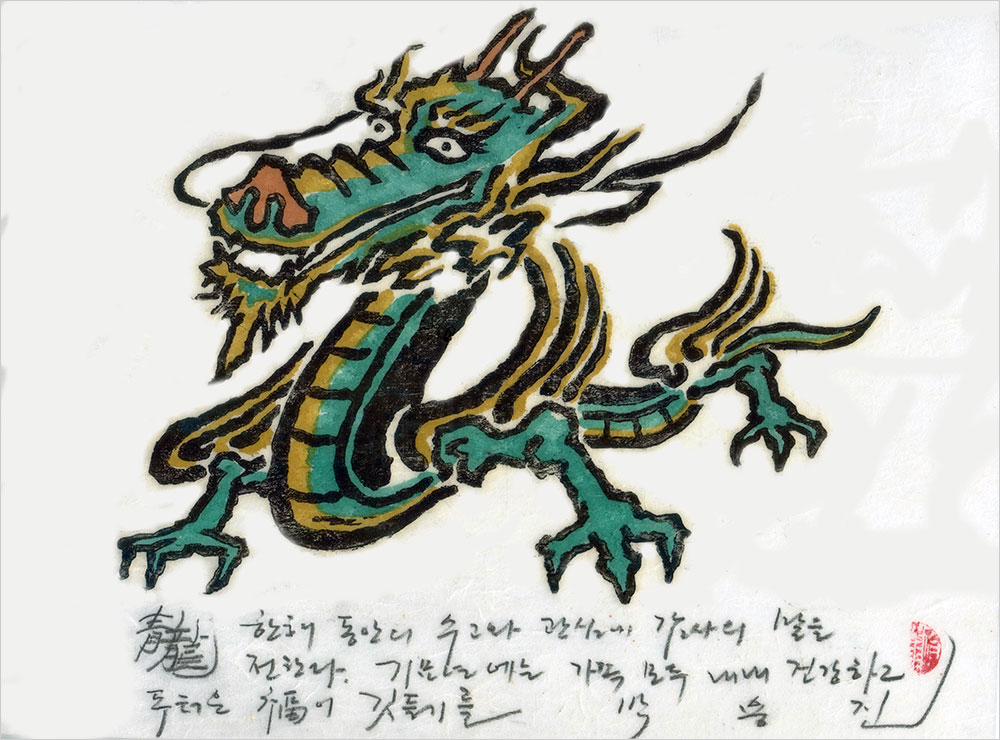 靑龍
한해 동안의 수고와 관심에 감사의 말을
전한다. 기묘년에는 가족 모두 내내 건강하고
두터운 福이 깃들기를 박 진